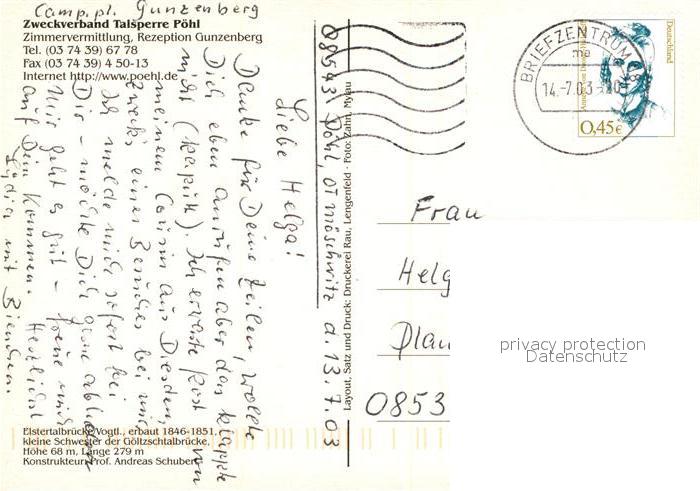 Camp.pl. Gunzenberg
Zweckverband Talsperre Pöhl
Zimmervermittlung, Rezeption Gunzenberg
Tel. (03 74 39) 67 78
Fax (03 74 39) 4 50-13
Internet http://www.poehl.de
08543 Pöhl, OT Möschwitz d. 13.7.03
Liebe Helga!
Danke für Deine Zeilen, wollte
Dich eben anrufen aber das klappte
nicht (kaputt). Ich erwarte Post von
meinem Cousin aus Dresden,
zwecks eines Besuches bei mir.
Ich melde mich sofort bei
Dir - möchte Dich gerne abholen
Mir geht es gut - freue mich
auf Dein Kommen. Herzlichst
Lydia mit Bienchen.
Elstertalbrücke/Vogtl., erbaut 1846-1851,
kleine Schwester der Göltzschtalbrücke.
Höhe 68 m, Länge 279 m
Konstrukteur: Prof. Andreas Schubert
Layout, Satz und Druck: Druckerei Rau, Lengenfeld · Foto: Zahn, Mylau
BRIEFZENTRUM 08
14.-7.03-20
Deutschland
0,45€
Frau
Helg
Plau
0853
privacy protection
Datenschutz